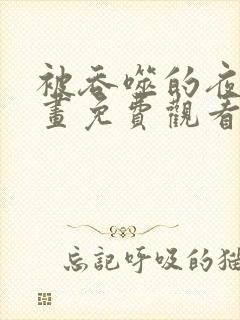 被吞噬的夜
畫免費觀看
忘記呼吸的猫